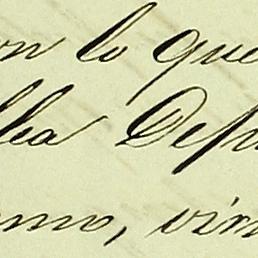 on lo que
llea Dep
smo, vin